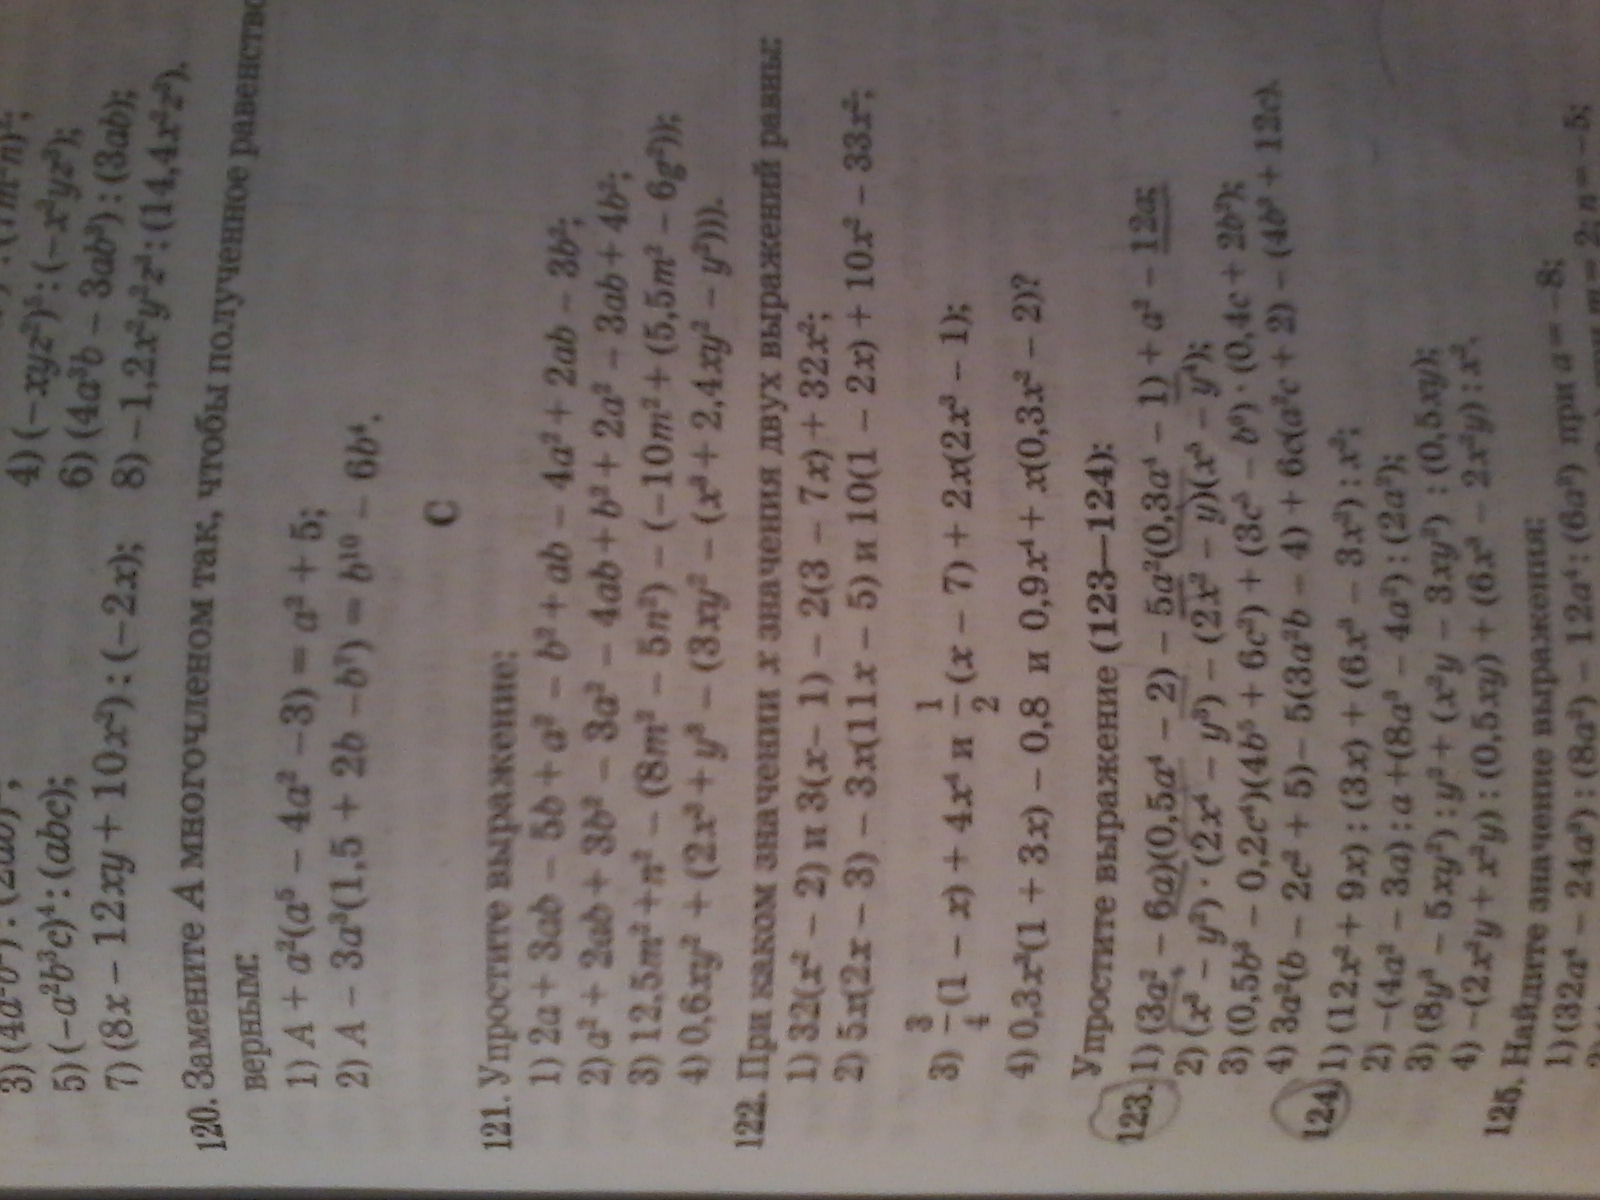 4) (−xyz²)⁵ : (−x³yz³);
5) (−a²b³c)⁴ : (abc);
6) (4a³b − 3ab³) : (3ab);
7) (8x − 12xy + 10x²) : (−2x);
8) −1,2x²y²z⁴ : (14,4x²z²).
120. Замените A многочленом так, чтобы полученное равенство
верным:
1) A + a²(a⁵ − 4a² −3) = a² + 5;
2) A − 3a³(1,5 + 2b −b⁷) = b¹⁰ − 6b⁴.
C
121. Упростите выражение:
1) 2a + 3ab − 5b + a² − b² + ab − 4a² + 2ab − 3b²;
2) a² + 2ab + 3b² − 3a² − 4ab + b² + 2a² − 3ab + 4b²;
3) 12,5m² + n² − (8m² − 5n²) − (−10m² + (5,5m² − 6g²));
4) 0,6xy² + (2x³ + y³ − (3xy² − (x³ + 2,4xy² − y³))).
122. При каком значении x значения двух выражений равны:
1) 32(x² − 2) и 3(x − 1) − 2(3 − 7x) + 32x²;
2) 5x(2x − 3) − 3x(11x − 5) и 10(1 − 2x) + 10x² − 33x²;
3) 3/4 (1 − x) + 4x⁴ и 1/2 (x − 7) + 2x(2x³ − 1);
4) 0,3x³(1 + 3x) − 0,8 и 0,9x⁴ + x(0,3x² − 2)?
Упростите выражение (123—124):
123. 1) (3a² − 6a)(0,5a⁴ − 2) − 5a²(0,3a⁴ − 1) + a² − 12a;
2) (x³ − y²) · (2x⁴ − y³) − (2x² − y)(x³ − y⁴);
3) (0,5b³ − 0,2c⁴)(4b⁵ + 6c²) + (3c⁵ − b⁶) · (0,4c + 2b²);
4) 3a²(b − 2c² + 5) − 5(3a²b − 4) + 6c(a²c + 2) − (4b³ + 12c).
124. 1) (12x² + 9x) : (3x) + (6x³ − 3x²) : x²;
2) −(4a² − 3a) : a + (8a³ − 4a²) : (2a²);
3) (8y³ − 5xy²) : y² + (x²y − 3xy²) : (0,5xy);
4) −(2x²y + x³y) : (0,5xy) + (6x³ − 2x²y) : x².
125. Найдите значение выражения:
1) (32a⁴ − 24a³) : (8a²) − 12a⁴ : (6a²) при a = −8;